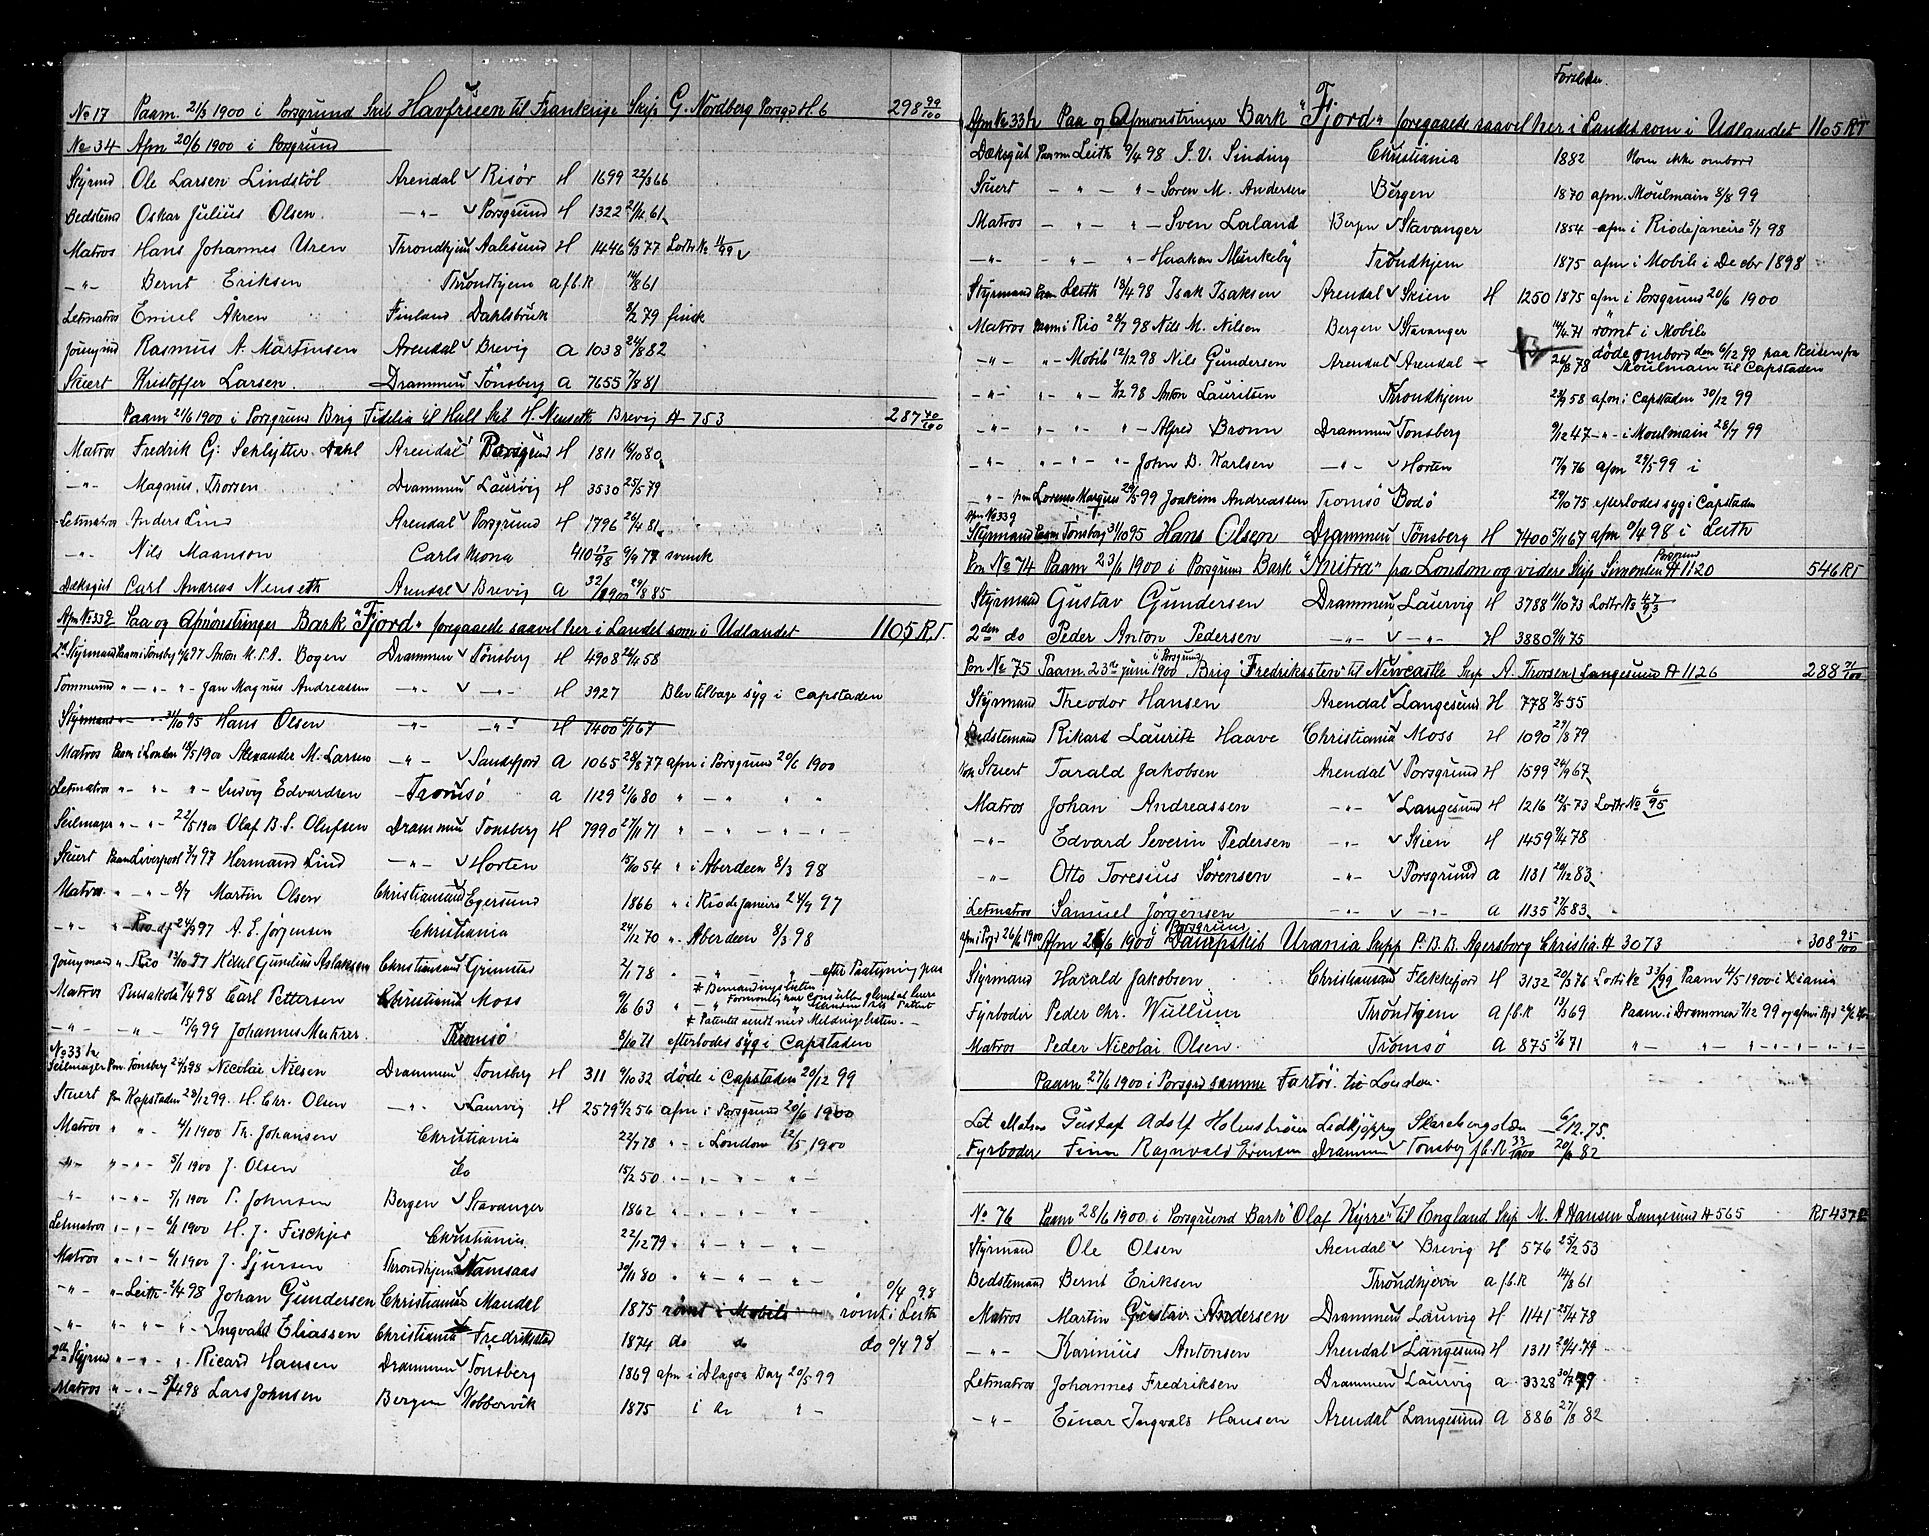 No 17 Paam. 21/3 1900 i Porsgrund Skib Havfruen til Frankerige Skip. G. Nordberg Porsgr H. 6 298 99/100
No 34 Afm 20/6 1900 i Porsgrund
Styrmd Ole Larsen Lindstöl Arendal Risör H 1699 22/3 66
Bedstemd Oskar Julius Olsen. -"- Porsgrund H 1322 21/4 61
Matros Hans Johannes Uren Throndhjem Aalesund H 1446 6/3 77 Lods No 11/99
-"- Bernt Eriksen Throndhjem a f.b.R 14/8 61
Letmatros Emiel Åkren Finland Dahlsbruk 8/2 79 finsk
Joungmd Rasmus A. Martinsen Arendal Brevig A 1038 24/8 82
Stuert Kristoffer Larsen. Drammen Tönsberg A 7655 7/8 81
Paam 21/6 1900 i Porsgrund Brig Fidelia til Hull Skib. H. Nenseth Brevig H 753 287 70/100
Matros Fredrik G: Schlytter Dahl Arendal Porsgrund H 1811 16/10 80
-"- Magnus Thorsen Drammen Laurvig H 3530 25/5 79
Letmatros Anders Lind Arendal Porsgrund H 1796 26/4 81
-"- Nils Maanson Carlskrona 410 17/98 9/9 77 svensk
Dæksgut Carl Andreas Nenseth Arendal Brevig A 32/1900 29/8 85
Afm No 33 g Paa og Afmönstringer Bark "Fjord" foregaaede saavel her i Landet som i Udlandet 1105 R.T.
2d Styrmand Paam i Tönsberg 97 Anton M. P. A. Bogen Drammen Tönsberg H 4908 24/4 58
Tömmermd " - " - " - Jan Magnus Andreassen -"- -"- H 3927 Blev tilbage syg i Capstaden
Styrmand " - 31/10 95 Hans Olsen -"- -"- H 7400 5/1 67
Matros Paam i London 18/5 1900 Alexander M. Larsen -"- Sandefjord A 1065 28/8 77 afm i Porsgrund 20/6 1900
Letmatros " - " - " - Ludvig Edvardsen Tromsö a 1129 2/6 80 " - " " "
Seilmager " - " - 22/5 1900 Olaf B. S. Olufsen Drammen Tönsberg H 7990 27/11 71 " - " - " - " -
Stuert Paam Liverpool 3/7 97 Hermand Lind -"- Horten 15/10 54 " i Aberdeen 8/3 98
Matros " - " - 8/7 Martin Olsen Christiansund Egersund 1866 " i Rio de Janeiro 24/9 97
-"- " Rio dj 24/9 97 A. E. Jörgensen Christiania 24/12 70 " Aberdeen 8/3 98
Joungmand " Rio 13/10 97 Kittil Gundius Aslaksen Christiansand Grimstad 2/1 78 " - " - " - efter Paategning paa
* Bemandingslisten
Matros Pensakola 9/1 98 Carl Pettersen Christiania Moss 9/6 63 " - "
* Patentet sendt med Meldingslisten. -
-"- -"- 15/9 99 Johannes Mækrer. Thromsö 8/10 71 efterlodes syg i Capstaden
No 33 h
Seilmager Pm. Tönsberg 24/3 98 Nicolai Nilsen Drammen Tönsberg H 311 9/10 32 döde i Capstaden 20/12 99
Stuert pm Kapstaden 28/12 99. H. Chr. Olsen -"- Laurvig H 2579 6/2 56 afm i Porsgrund 20/6 1900
Matros " " - 4/1 1900 Th. Johansen Christiania 22/7 78 " - i London 12/5 1900
-"- " - " - 5/1 1900 J. Olsen do 15/2 50 " - " - " - " -
-"- " - " - 5/1 1900 P. Johnsen Bergen Stavanger 1862 " - " - " - " -
Letmatros " - " - 6/1 1900 H. J. Fischjer Christiania 22/12 79 " - " - " - " -
Matros " - " - 6/1 1900 J. Sjursen Throndhjem Namsaas 30/11 80 " " - " - " -
-"- " - Leith 2/4 98 Johan Gundersen Christiansand Mandal 1875 römt i Mobile römt i Leith 9/4 98
-"- " " " " - Ingvald Eliassen Christiania Fredrikstad 1874 do do do 9/4 98
2den Styrmd " - " - " " Ricard Hansen Drammen Tönsberg 1869 afm i Dlagoa Bay 20/5 99
Matros " - " - 5/4 98 Lars Johnsen Bergen Kobbervik 1875 i do " -
Afm No 33 h Paa og Afmönstringer Bark "Fjord" foregaaede saavel her i Landet som i Udlandet 1105 RT
Dæksgut Paam Leith 9/4 98 J. V. Sinding Christiania 1882 Kom ikke ombord
Stuert - " - " - Sören M. Andersen Bergen 1870 afm. Moulmain 8/8 99
Matros - " - " - Sven Loland Bergen Stavanger 1854 - afm i Rio de janeiro 5/7 98
-"- " - " - Haakon Munkeby Trondhjem 1875 afm i Mobile i Decbr 1898
Styrmand Paam Leith 13/4 98 Isak Isaksen Arendal Skien H 1250 1875 afm i Porsgrund 20/6 1900
Matros Paam i Rio 28/7 98 Nils M. Nilsen Bergen Stavanger 14/4 71 römt i Mobile
-"- " - Mobile 12/12 98 Nils Gundersen Arendal Arendal 26/8 78 döde ombord den 6/12 99 paa Reisen fra Moulmain til Capstaden
-"- " - " - 3/12 98 Anton Lauritsen Throndhjem 23/9 58 afm. i Capstaden 30/12 99
-"- " - " - " - Alfred Bronn Drammen Tönsberg 9/12 47 - " - i Moulmain 28/7 99
-"- " - " - " - John B. Karlsen -"- Horten 17/9 76 afm 29/5 99 i
-"- pm Lorenso Marques 29/5 99 Joakim Andreassen Tromsö Bodö 29/10 75 efterlodes syg i Capstaden
Afm No 33 g
Styrmand Paam Tönsberg 31/10 95 Hans Olsen Drammen Tönsberg H 7400 5/1 67 afm 9/4 98 i Leith
Pm No 74 Paam 23/6 1900 i Porsgrund Bark "Anitra" fra London og videre Skip. Simonsen Porsgrund H 1120 546 RT
Styrmand Gustav Gundersen Drammen Laurvig H 3788 11/10 73 Lods No 47/93
2den do Peder Anton Pedersen -"- -"- H 3880 9/1 75
Pm No 75 Paam. 23de juni 1900 i Porsgrund Brig "Fredriksten" til Newcastle Skip. A. Thorsen Langesund H 1126 288 71/100
Styrmand Theodor Hansen Arendal Langesund H 778 9/5 55
Bedstemand Rikard Lauritz Haave Christiania Moss H 1090 29/8 79
Kok Stuert Tarald Jakobsen Arendal Porsgrund H 1599 24/9 67
Matros Johan Andreassen -"- Langesund H 1216 12/5 73 Lods No 6/95
-"- Edvard Severin Pedersen -"- Skien H 1459 9/4 78
-"- Otto Toresius Sörensen -"- Porsgrund a 1131 20/12 83
Letmatros Samuel Jörgensen -"- -"- A 1135 27/5 83
Afm i Prsgd 26/6 1900 Afm 26/6 1900 i Porsgrund Dampskib Urania Skipp P. B. B. Agersborg Christia. H 3073 308 95/100
Styrmand Harald Jakobsen Christiansand Flekkefjord H 3132 20/5 76 Lods No 33/99 Paam 4/5 1900 i Xiania
Fyrböder Peder Chr. Wullum Throndhjem A f.b.R 13/3 69 Paam. i Drammen 7/12 99 og afm i Prsgd 26/6
Matros Peder Nicolai Olsen. Tromsö A 875 5/6 71 " - " - " - " - " -
Paam 27/6 1900 i Porsgrd samme Fartöi til London.
Let Matros Gustaf Adolf Holmströmer Lidkjöping Skaraborgslän 6/12. 75.
Fyrböder Finn Ragnvald Evensen Drammen Tönsberg f.b.R 33/1900 20/6 82
No 76 Paam 28/6 1900 i Porsgrund Bark "Olaf Kyrre" til England Skip. M. A Hansen Langesund H 565 RT 437
Styrmand Ole Olsen Arendal Brevig H 576 25/2 53
Bedstemand Bernt Eriksen Throndhjem a f.b.R 14/8 61
Matros Martin Gustav Andersen Drammen Laurvig H 1141 25/4 78
-"- Karinius Antonsen Arendal Langesund H 1311 29/4 79
Letmatros Johannes Fredriksen Drammen Laurvig a 3328 30/7 79
-"- Einar Ingvald Hansen Arendal Langesund A 886 27/8 82